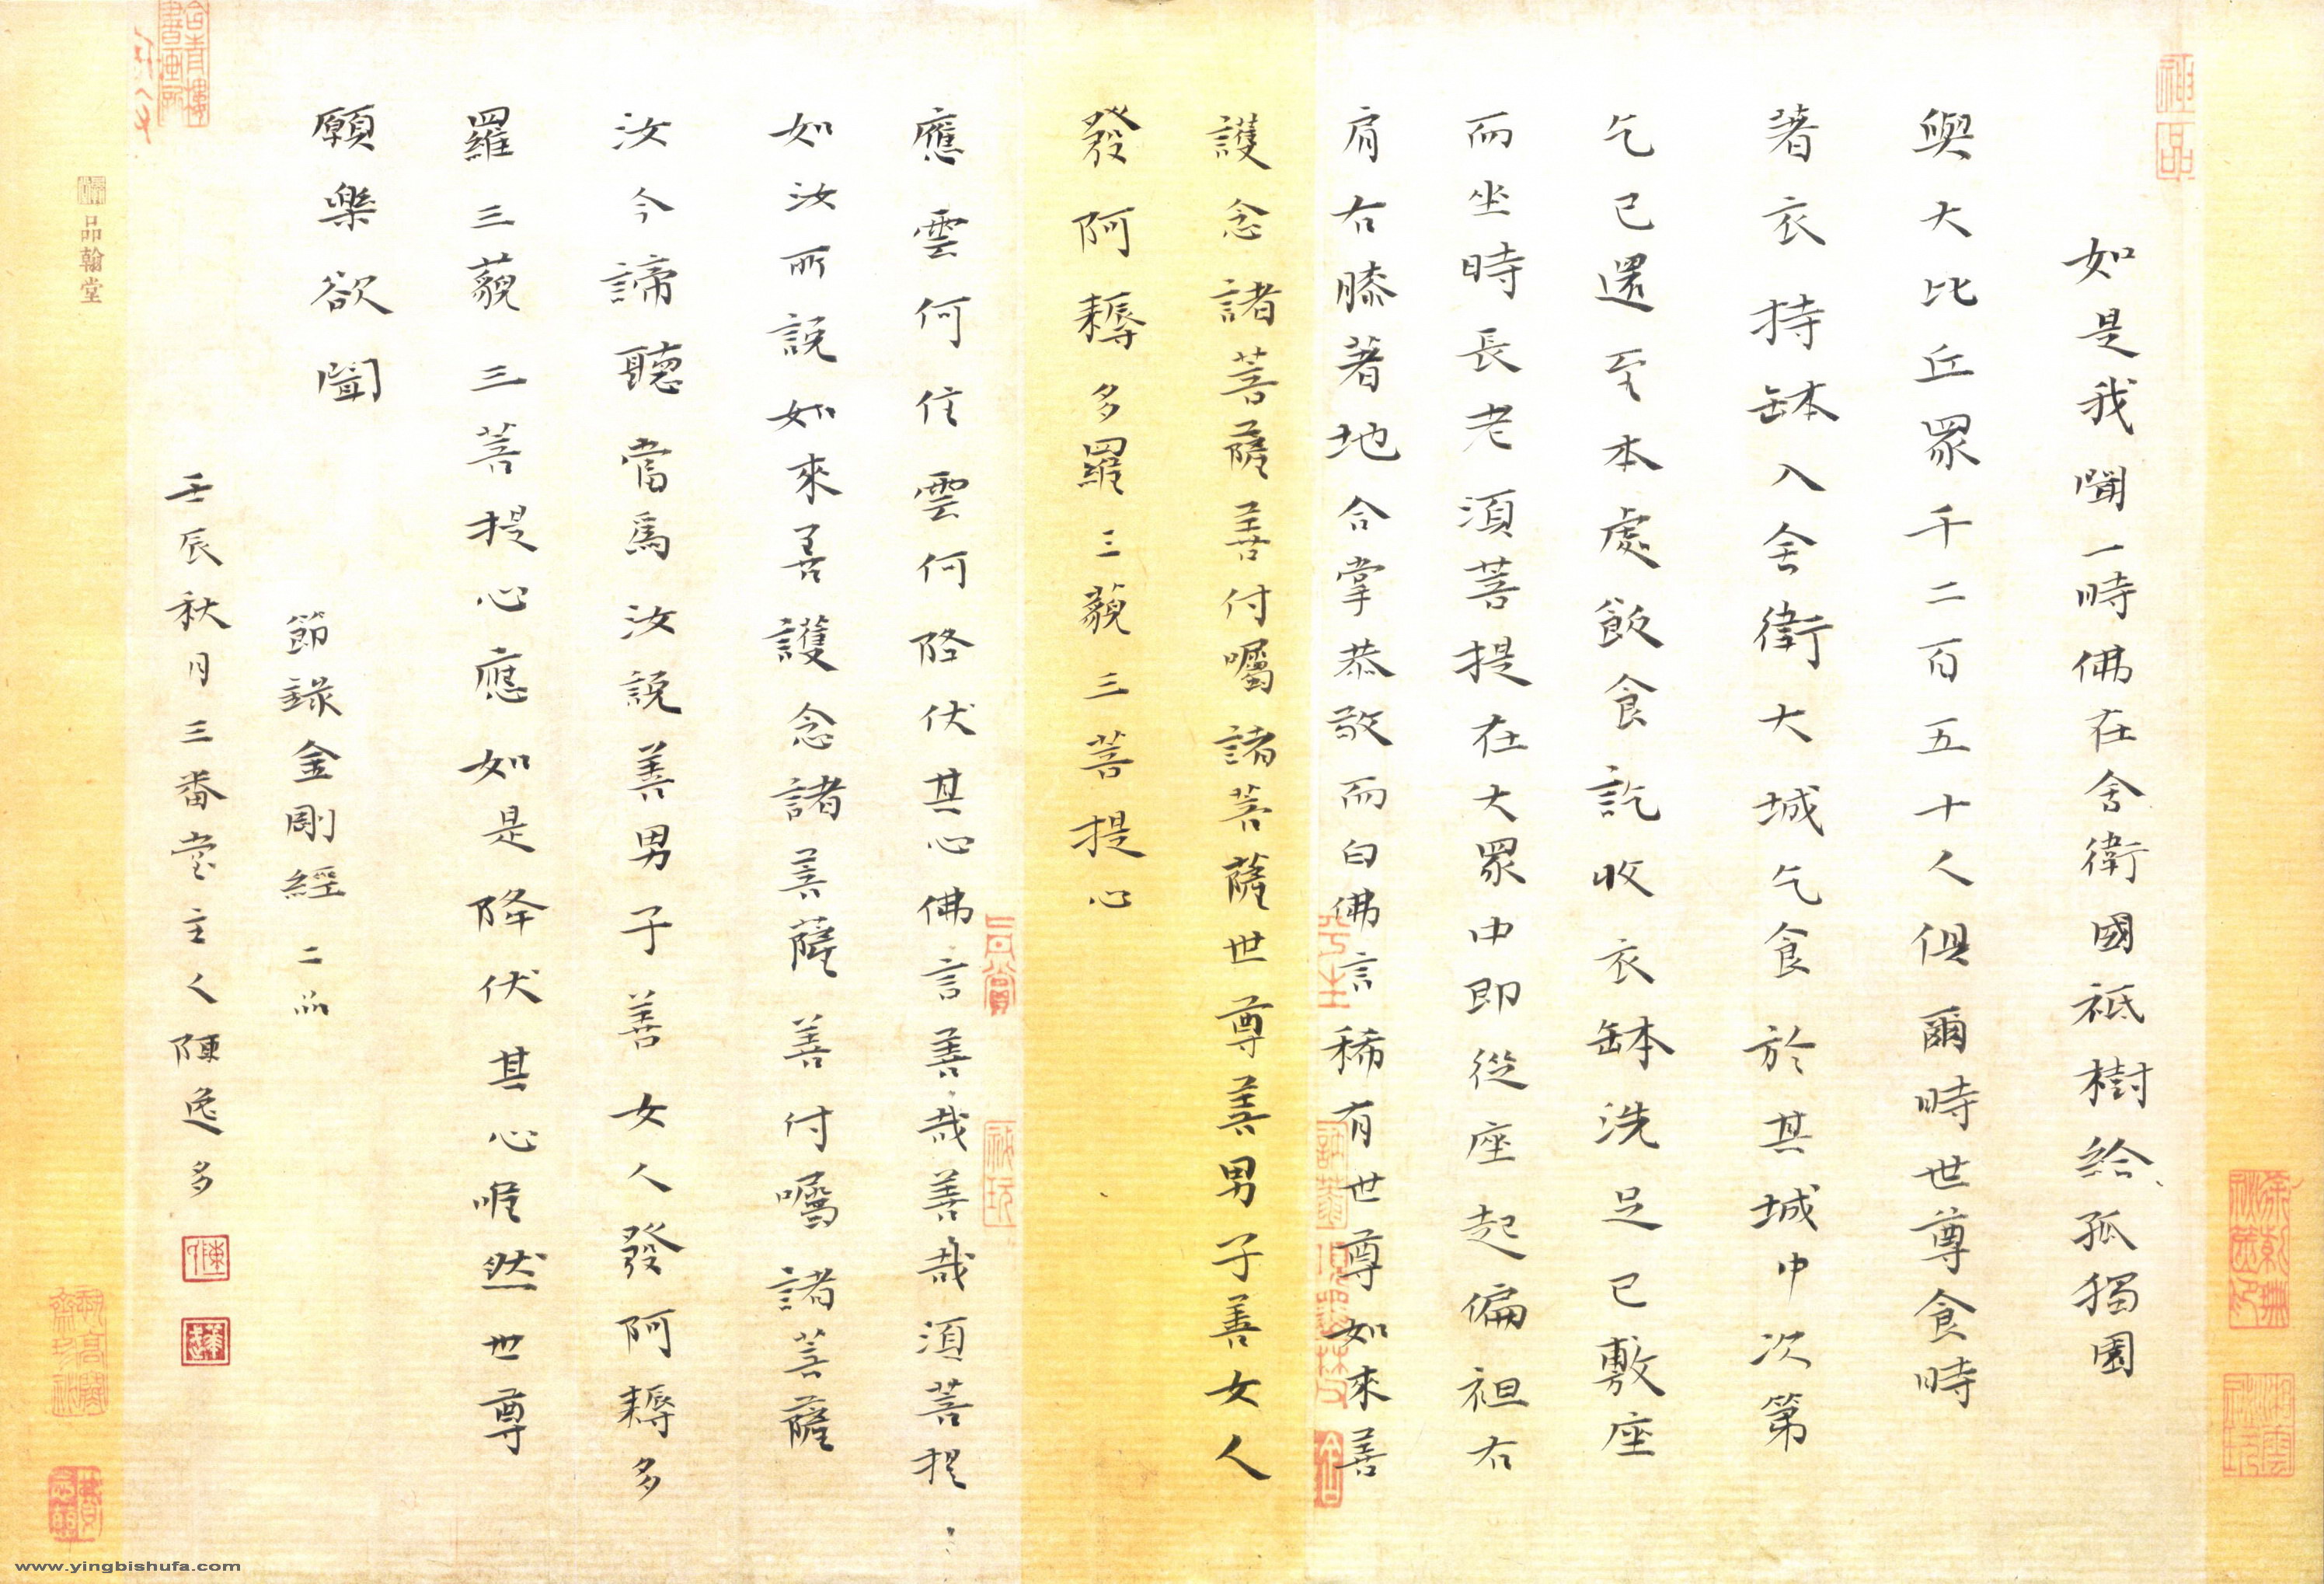 如是我聞一時佛在舍衛國祗樹給孤獨園
與大比丘眾千二百五十人俱爾時世尊食時
著衣持缽入舍衛大城乞食於其城中次第
乞已還至本處飯食訖收衣缽洗足已敷座
而坐時長老須菩提在大眾中即從座起偏袒右
肩右膝著地合掌恭敬而白佛言稀有世尊如來善
護念諸菩薩善付囑諸菩薩世尊善男子善女人
發阿耨多羅三藐三菩提心
應雲何住雲何降伏其心佛言善哉善哉須菩提
如汝所說如來善護念諸菩薩善付囑諸菩薩
汝今諦聽當為汝說善男子善女人發阿耨多
羅三藐三菩提心應如是降伏其心唯然世尊
願樂欲聞
節錄金剛經二品
壬辰秋月三番堂主人陳逸多
神品
品翰堂
www.yingbishufa.com